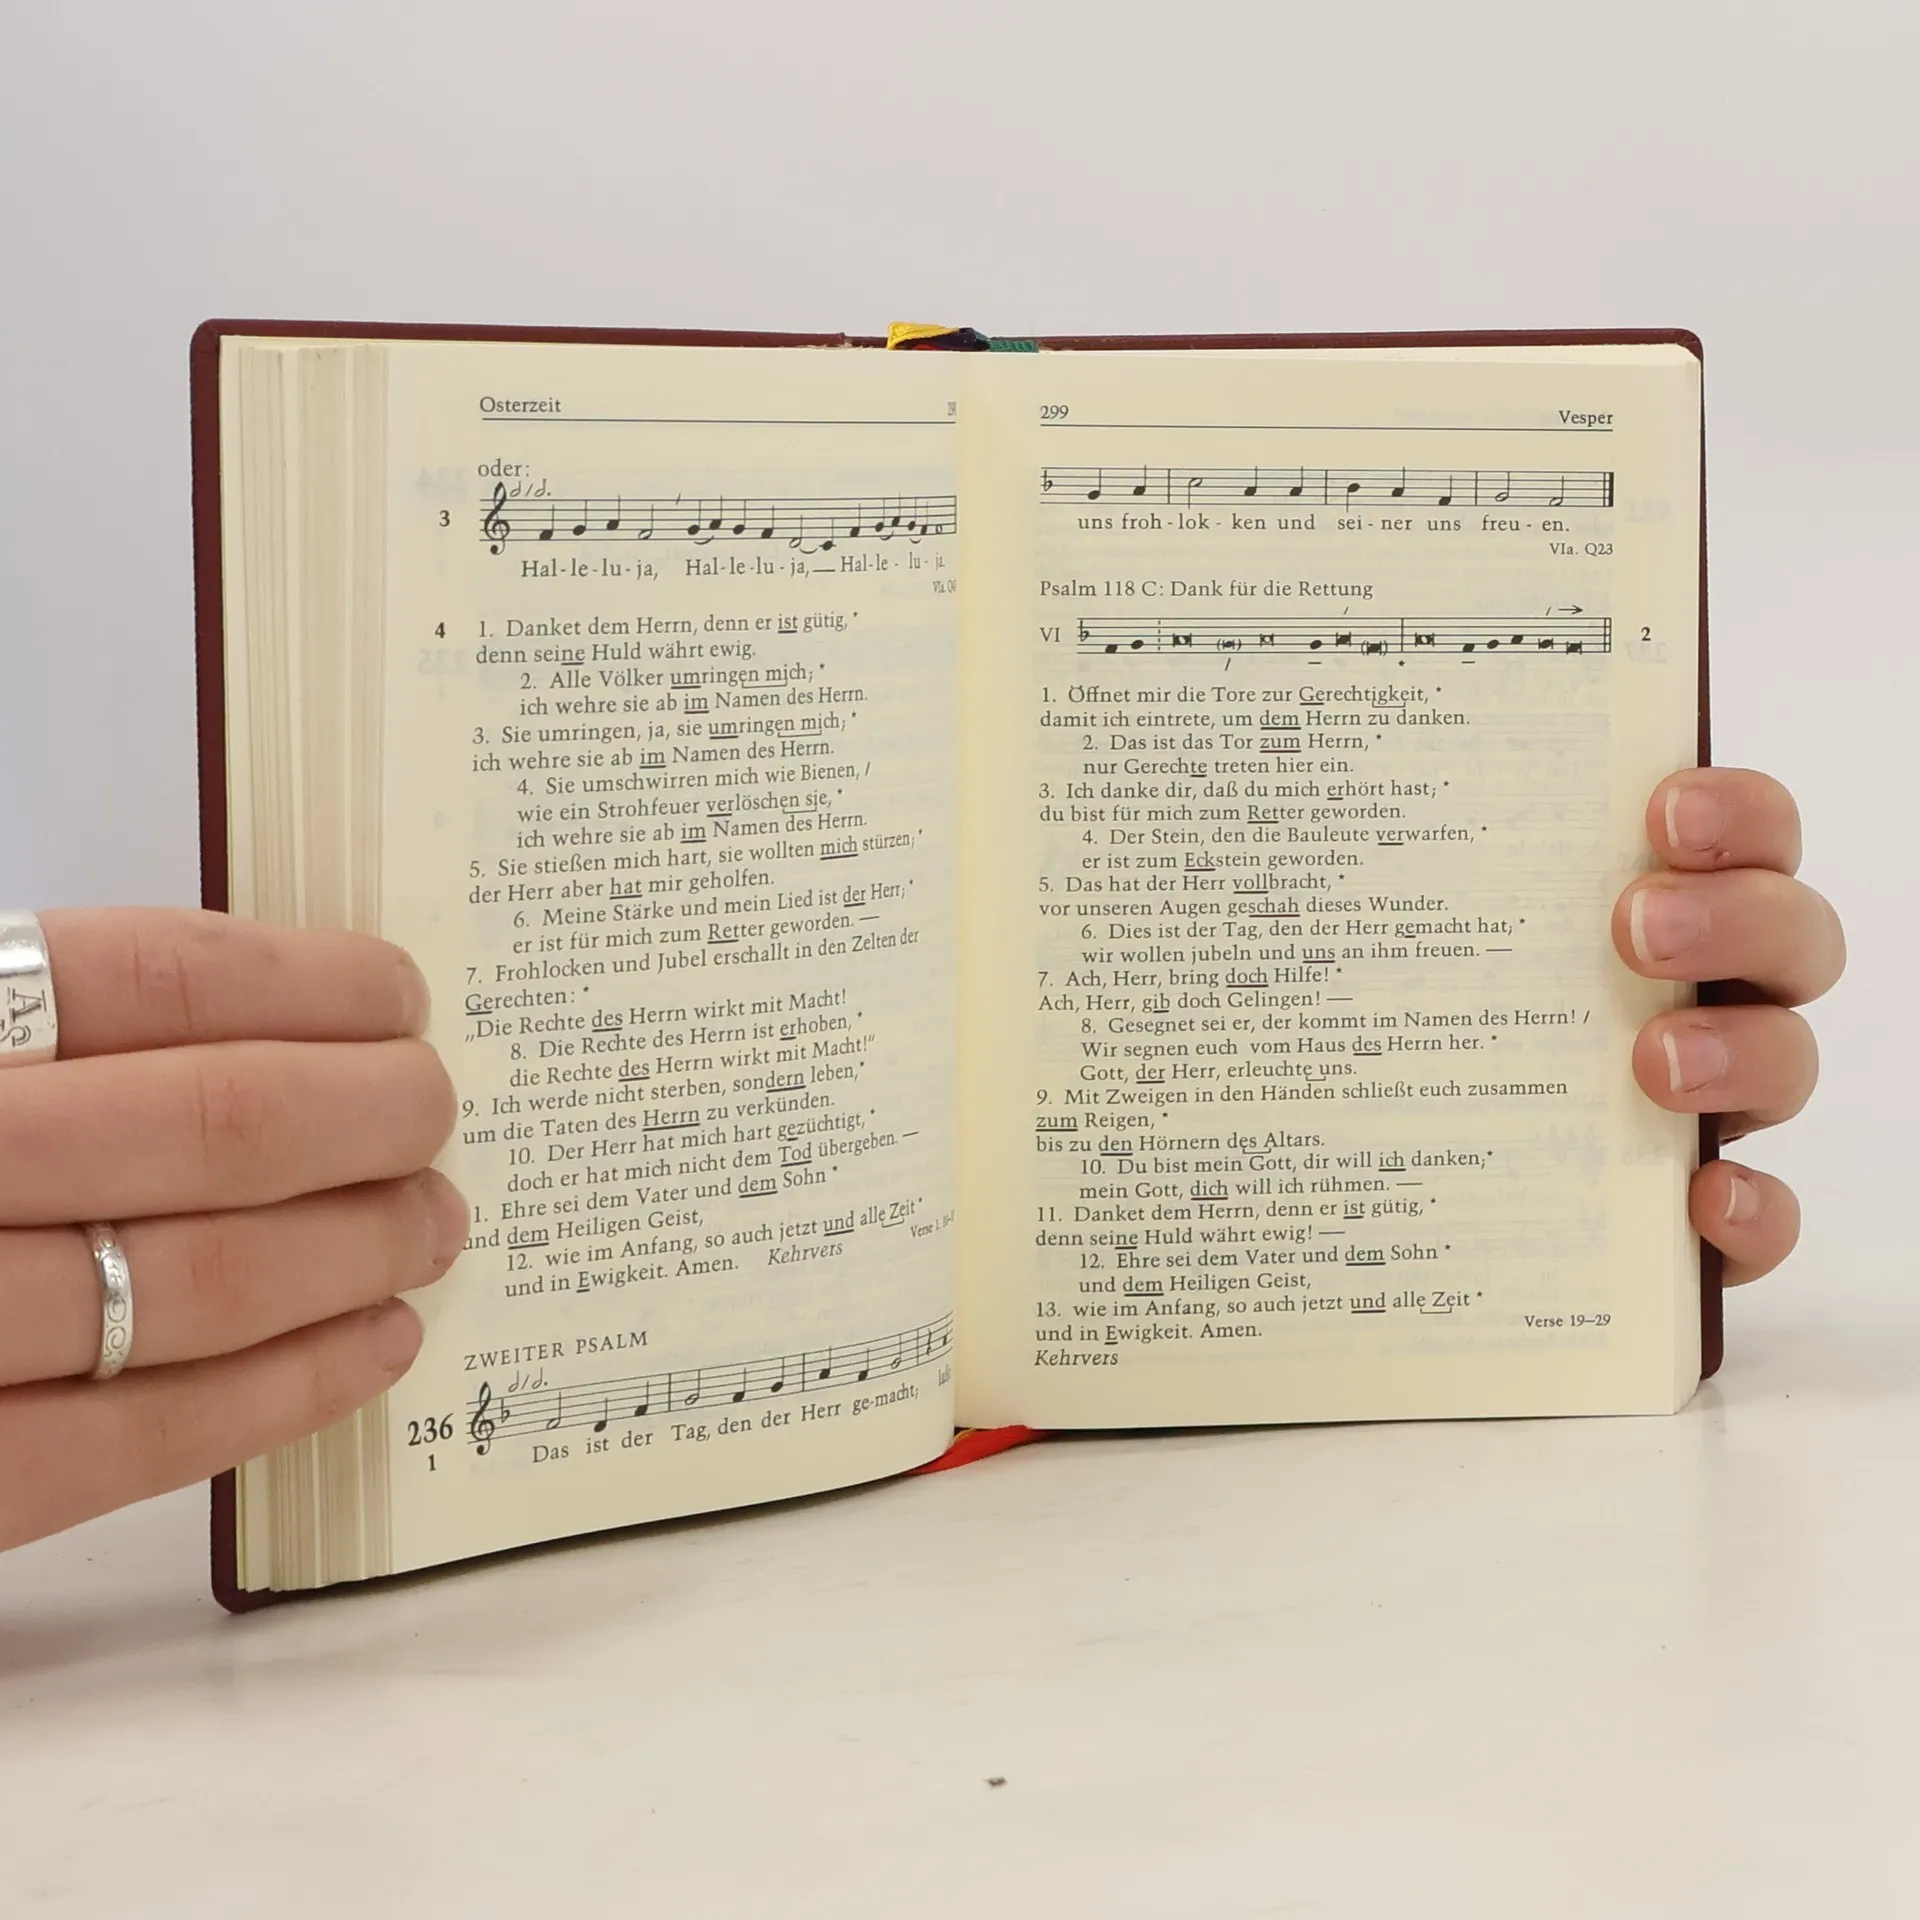 Osterzeit
oder:
3
Hal-le-lu-ja, Hal-le-lu-ja,— Hal-le-lu-ja.
4 1. Danket dem Herrn, denn er ist gütig, *
denn seine Huld währt ewig.
2. Alle Völker umringen mich; *
ich wehre sie ab im Namen des Herrn.
3. Sie umringen, ja, sie umringen mich; *
ich wehre sie ab im Namen des Herrn.
4. Sie umschwirren mich wie Bienen, /
wie ein Strohfeuer verlöschen sie, *
ich wehre sie ab im Namen des Herrn.
5. Sie stießen mich hart, sie wollten mich stürzen; *
der Herr aber hat mir geholfen.
6. Meine Stärke und mein Lied ist der Herr; *
er ist für mich zum Retter geworden. —
7. Frohlocken und Jubel erschallt in den Zelten der
Gerechten: *
„Die Rechte des Herrn wirkt mit Macht!
8. Die Rechte des Herrn ist erhoben, *
die Rechte des Herrn wirkt mit Macht!“
9. Ich werde nicht sterben, sondern leben, *
um die Taten des Herrn zu verkünden.
10. Der Herr hat mich hart gezüchtigt, *
doch er hat mich nicht dem Tod übergeben. —
1. Ehre sei dem Vater und dem Sohn *
und dem Heiligen Geist,
12. wie im Anfang, so auch jetzt und alle Zeit *
und in Ewigkeit. Amen. Kehrvers
ZWEITER PSALM
236
1
Das ist der Tag, den der Herr ge-macht;
299 Vesper
uns froh-lok-ken und sei-ner uns freu-en.
VIa. Q23
Psalm 118 C: Dank für die Rettung
VI 2
1. Öffnet mir die Tore zur Gerechtigkeit, *
damit ich eintrete, um dem Herrn zu danken.
2. Das ist das Tor zum Herrn, *
nur Gerechte treten hier ein.
3. Ich danke dir, daß du mich erhört hast; *
du bist für mich zum Retter geworden.
4. Der Stein, den die Bauleute verwarfen, *
er ist zum Eckstein geworden.
5. Das hat der Herr vollbracht, *
vor unseren Augen geschah dieses Wunder.
6. Dies ist der Tag, den der Herr gemacht hat; *
wir wollen jubeln und uns an ihm freuen. —
7. Ach, Herr, bring doch Hilfe! *
Ach, Herr, gib doch Gelingen! —
8. Gesegnet sei er, der kommt im Namen des Herrn! /
Wir segnen euch vom Haus des Herrn her. *
Gott, der Herr, erleuchte uns.
9. Mit Zweigen in den Händen schließt euch zusammen
zum Reigen, *
bis zu den Hörnern des Altars.
10. Du bist mein Gott, dir will ich danken; *
mein Gott, dich will ich rühmen. —
11. Danket dem Herrn, denn er ist gütig, *
denn seine Huld währt ewig! —
12. Ehre sei dem Vater und dem Sohn *
und dem Heiligen Geist,
13. wie im Anfang, so auch jetzt und alle Zeit *
und in Ewigkeit. Amen. Verse 19–29
Kehrvers